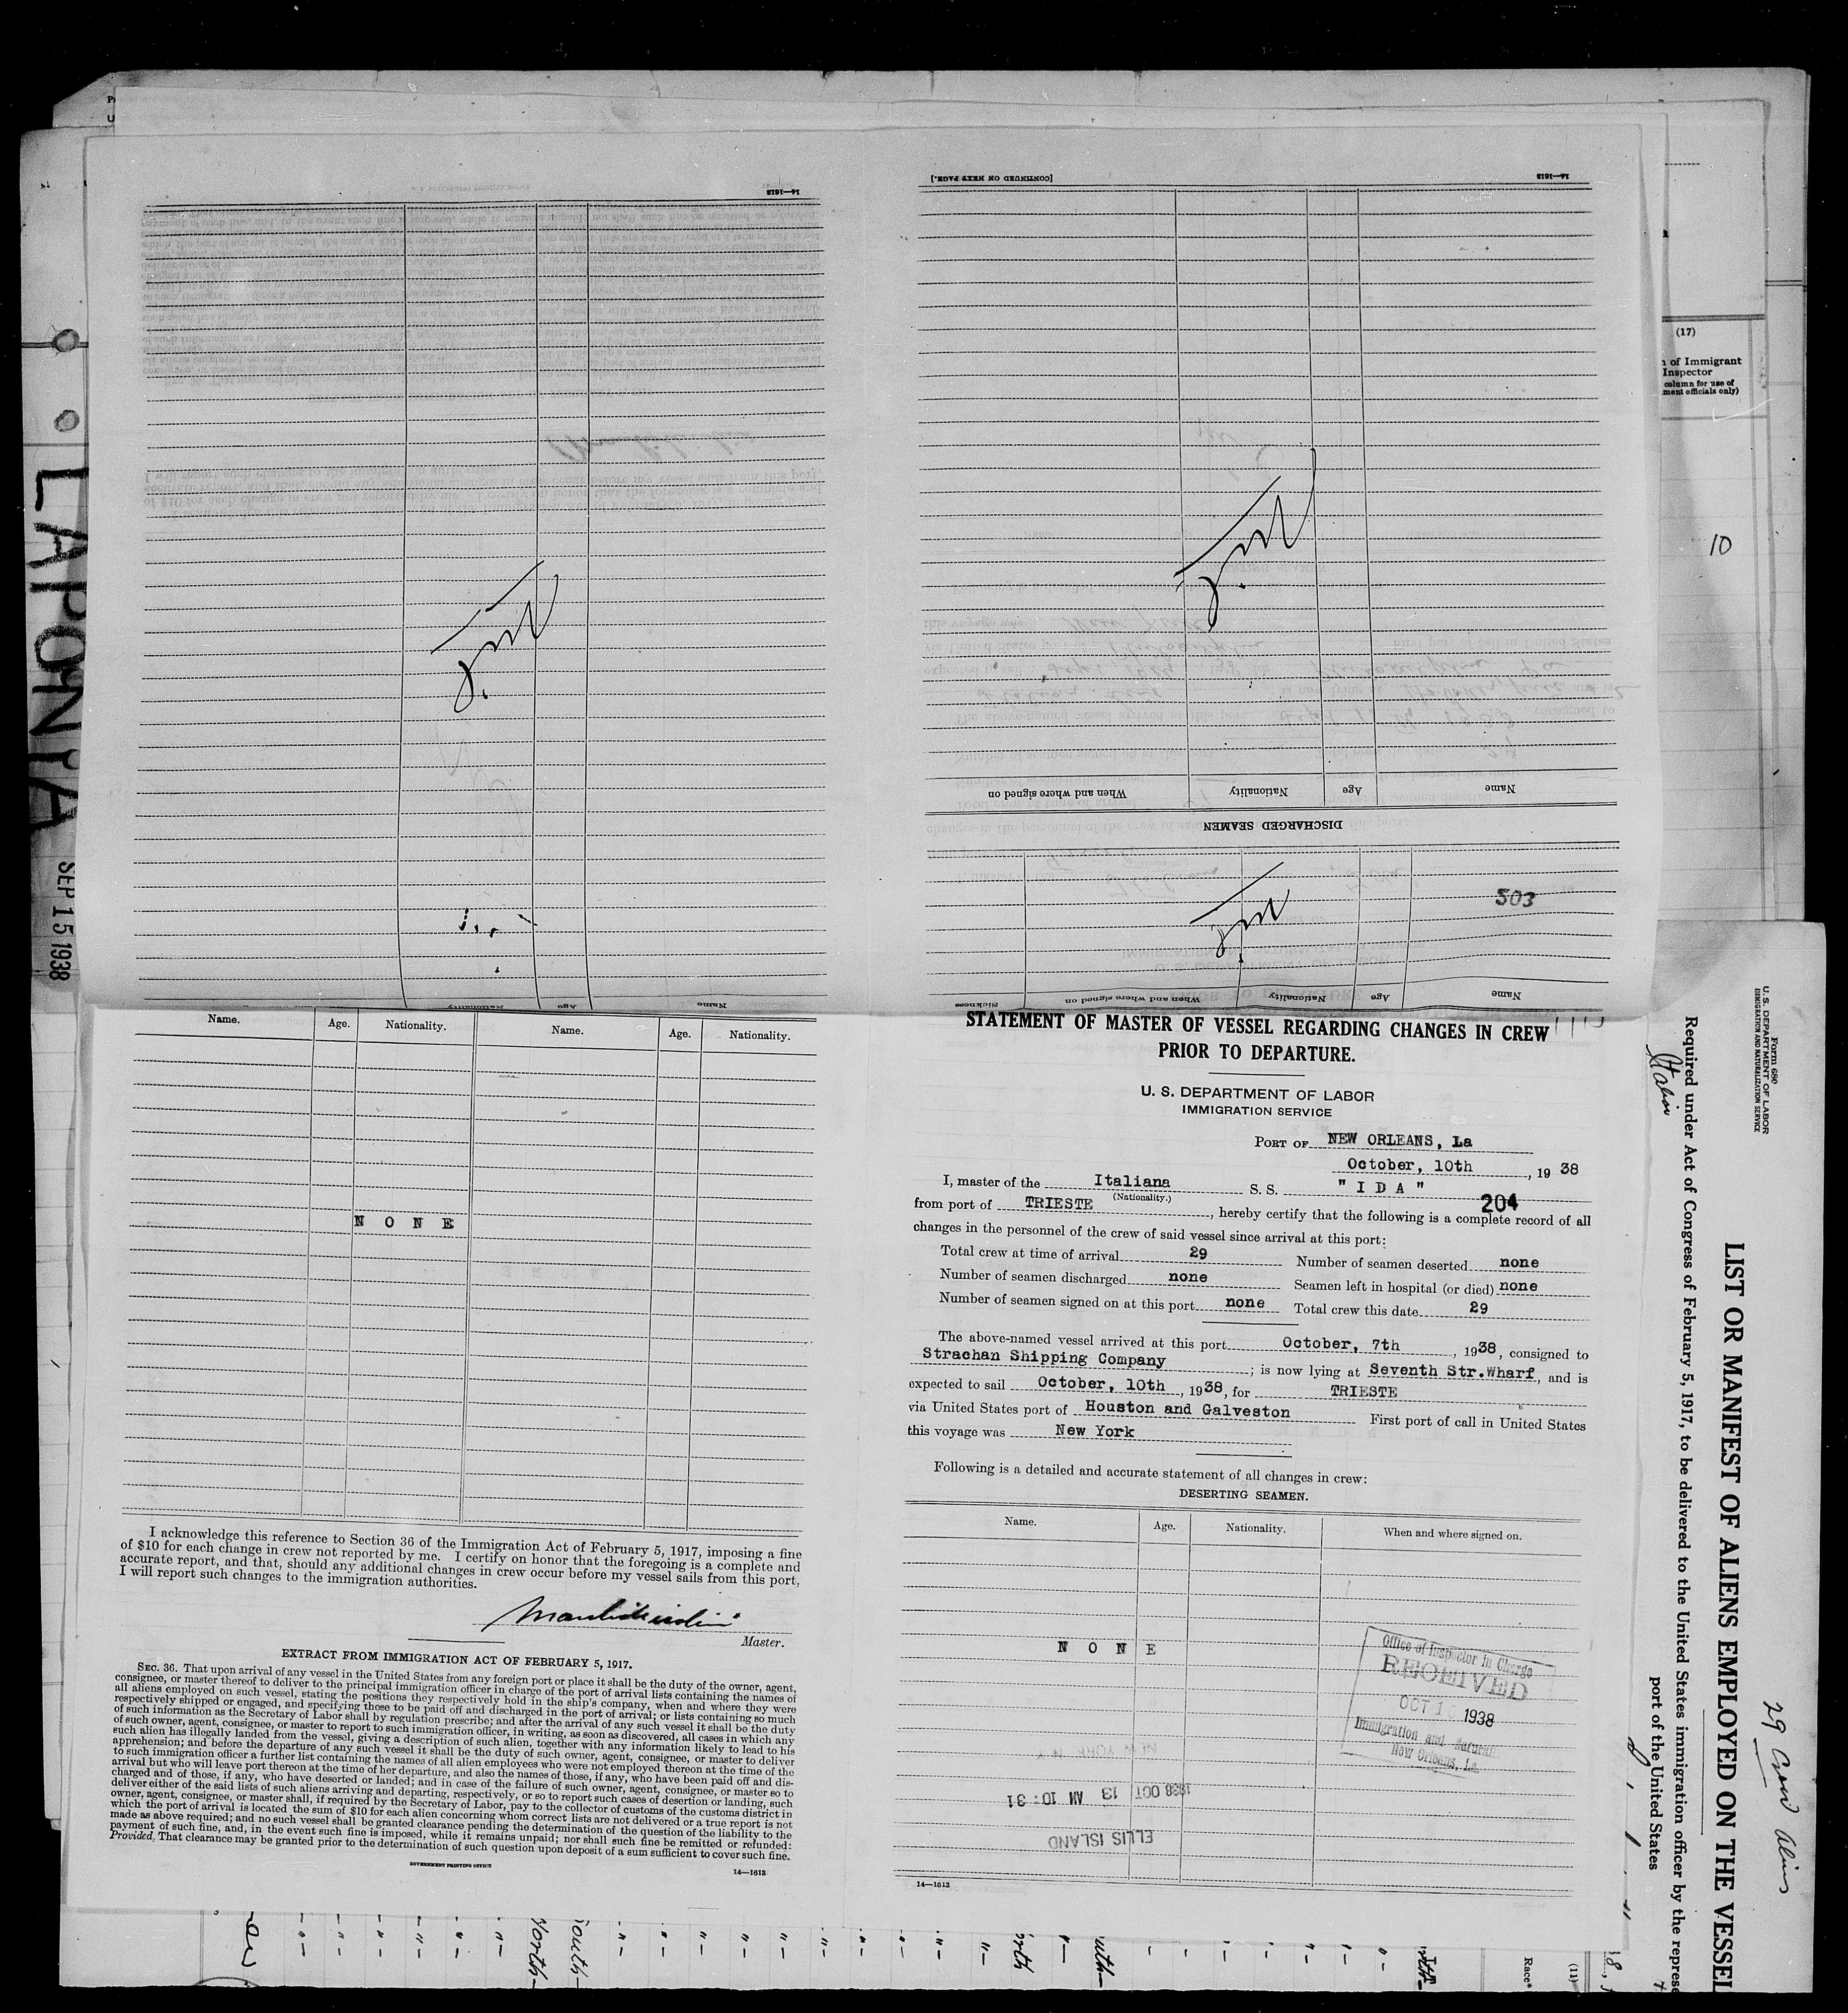 LAPONIA
SEP 15 1938
14—1613
[CONTINUED ON NEXT PAGE.]
14—1613
Name
Age
Nationality
When and where signed on
DISCHARGED SEAMEN
503
Name
Age
Nationality
When and where signed on
Sickness
Name
Age
Nationality
(17)
of Immigrant
Inspector
column for use of
ment officials only)
10
Name. Age. Nationality. Name. Age. Nationality.
NONE
I acknowledge this reference to Section 36 of the Immigration Act of February 5, 1917, imposing a fine
of $10 for each change in crew not reported by me. I certify on honor that the foregoing is a complete and
accurate report, and that, should any additional changes in crew occur before my vessel sails from this port,
I will report such changes to the immigration authorities.
Master.
EXTRACT FROM IMMIGRATION ACT OF FEBRUARY 5, 1917.
SEC. 36. That upon arrival of any vessel in the United States from any foreign port or place it shall be the duty of the owner, agent,
consignee, or master thereof to deliver to the principal immigration officer in charge of the port of arrival lists containing the names of
all aliens employed on such vessel, stating the positions they respectively hold in the ship's company, when and where they were
respectively shipped or engaged, and specifying those to be paid off and discharged in the port of arrival; or lists containing so much
of such information as the Secretary of Labor shall by regulation prescribe; and after the arrival of any such vessel it shall be the duty
of such owner, agent, consignee, or master to report to such immigration officer, in writing, as soon as discovered, all cases in which any
such alien has illegally landed from the vessel, giving a description of such alien, together with any information likely to lead to his
apprehension; and before the departure of any such vessel it shall be the duty of such owner, agent, consignee, or master to deliver
to such immigration officer a further list containing the names of all alien employees who were not employed thereon at the time of the
arrival but who will leave port thereon at the time of her departure, and also the names of those, if any, who have been paid off and dis-
charged and of those, if any, who have deserted or landed; and in case of the failure of such owner, agent, consignee, or master so to
deliver either of the said lists of such aliens arriving and departing, respectively, or so to report such cases of desertion or landing, such
owner, agent, consignee, or master shall, if required by the Secretary of Labor, pay to the collector of customs of the customs district in
which the port of arrival is located the sum of $10 for each alien concerning whom correct lists are not delivered or a true report is not
made as above required; and no such vessel shall be granted clearance pending the determination of the question of the liability to the
payment of such fine, and, in the event such fine is imposed, while it remains unpaid; nor shall such fine be remitted or refunded:
Provided, That clearance may be granted prior to the determination of such question upon deposit of a sum sufficient to cover such fine.
GOVERNMENT PRINTING OFFICE
14—1613
STATEMENT OF MASTER OF VESSEL REGARDING CHANGES IN CREW
PRIOR TO DEPARTURE.
U. S. DEPARTMENT OF LABOR
IMMIGRATION SERVICE
PORT OF NEW ORLEANS, La
October, 10th, 1938
I, master of the Italiana S. S. "IDA"
(Nationality.)
204
from port of TRIESTE, hereby certify that the following is a complete record of all
changes in the personnel of the crew of said vessel since arrival at this port:
Total crew at time of arrival 29 Number of seamen deserted none
Number of seamen discharged none Seamen left in hospital (or died) none
Number of seamen signed on at this port none Total crew this date 29
The above-named vessel arrived at this port October, 7th, 1938, consigned to
Strachan Shipping Company; is now lying at Seventh Str.Wharf, and is
expected to sail October, 10th, 1938, for TRIESTE
via United States port of Houston and Galveston First port of call in United States
this voyage was New York
Following is a detailed and accurate statement of all changes in crew:
DESERTING SEAMEN.
Name. Age. Nationality. When and where signed on.
NONE
Office of Inspector in Charge
RECEIVED
OCT 1 1938
Immigration and
New Orleans, La.
1938 OCT 13 AM 10:31
ELLIS ISLAND
14—1613
Form 680
U. S. DEPARTMENT OF LABOR
IMMIGRATION AND NATURALIZATION SERVICE
LIST OR MANIFEST OF ALIENS EMPLOYED ON THE VESSEL
Required under Act of Congress of February 5, 1917, to be delivered to the United States immigration officer by the represe
port of the United States
Italian
29 Crew Aliens
(11)
Race*
North
South